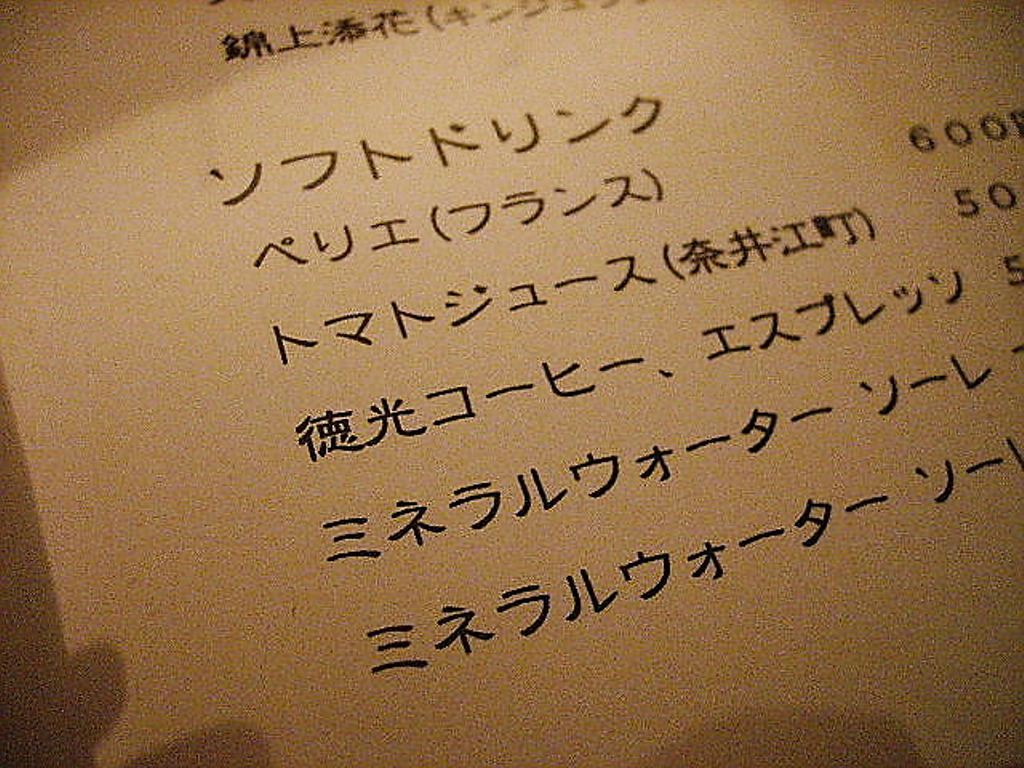 錦上添花(キンジョウ
ソフトドリンク
ペリエ(フランス) 600
トマトジュース(奈井江町) 50
徳光コーヒー、エスプレッソ 5
ミネラルウォーター ソーレ
ミネラルウォーター ソーレ